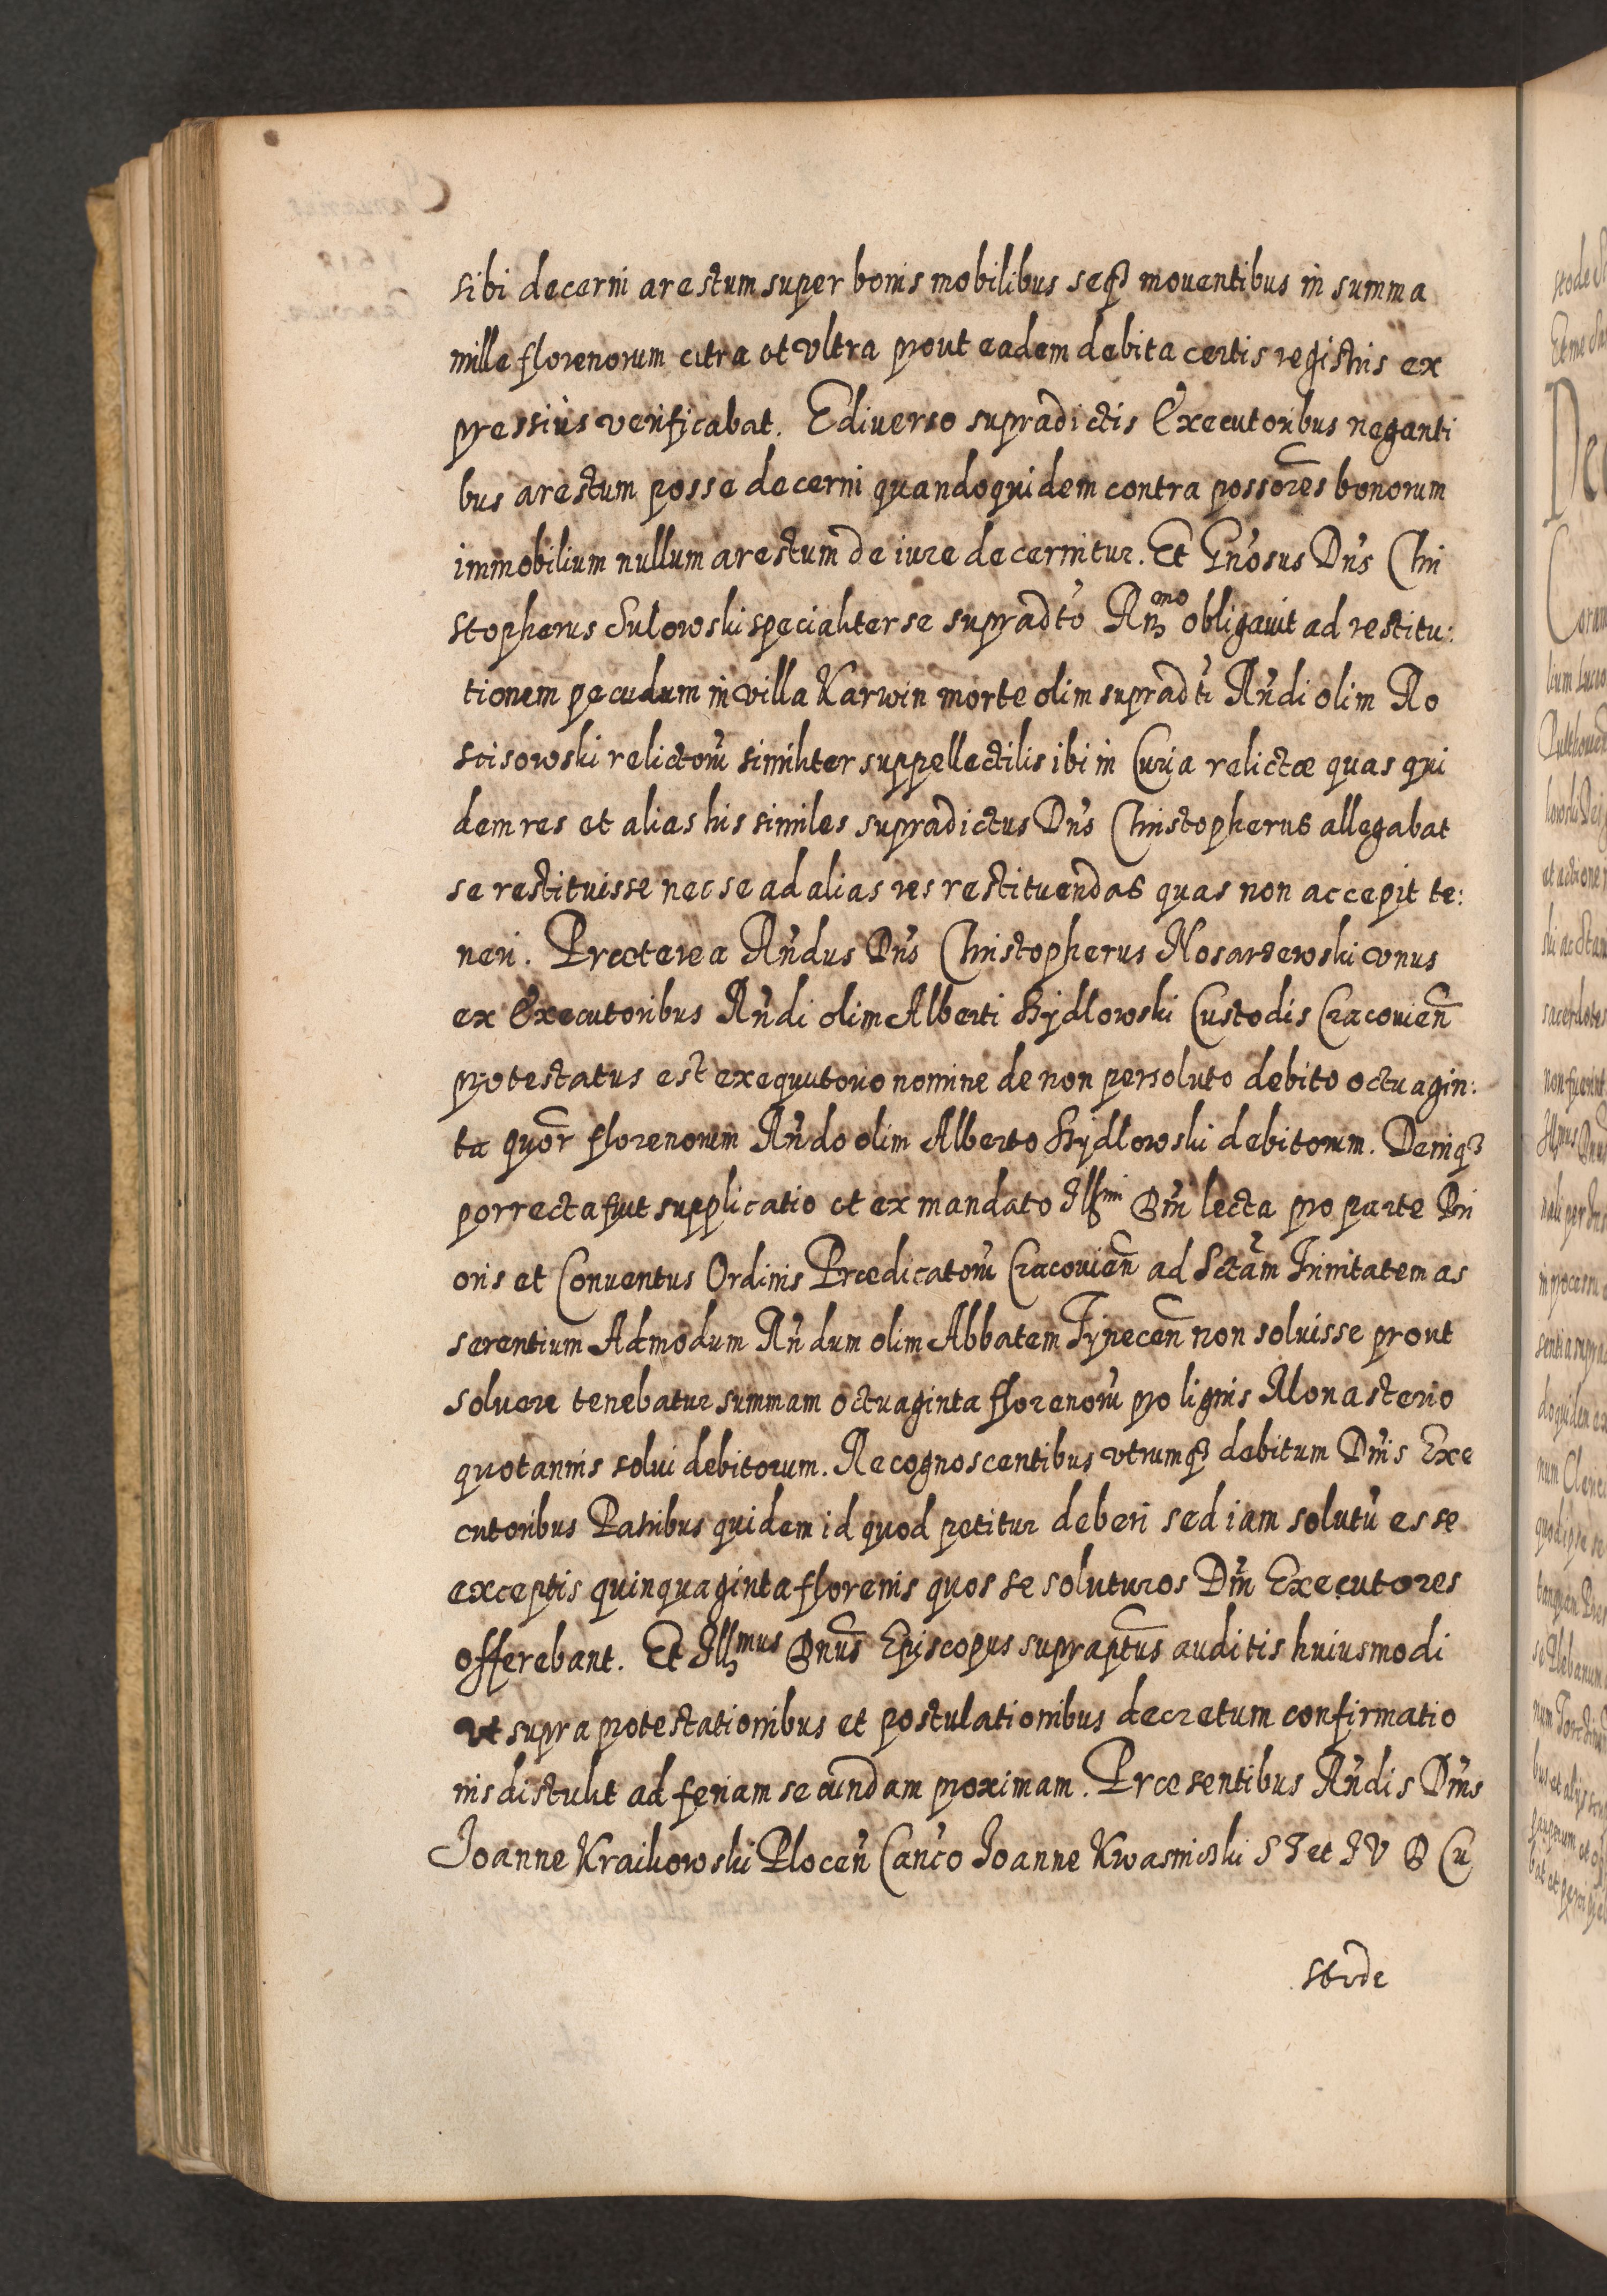 sibi decerni arestum super bonis mobilibus seqꝫ mouentibus in summa
mille florenorum citra et vltra prout eadem debita certis registris ex
pressius verificabat. Ediuerso supradictis Executoribus neganti
bus arestum posse decerni quandoquidem contra possores bonorum
immobilium nullum arestum de iure decernitur. Et Gnosus Dns Chri
stopherus Sulowski specialiter se supradto Rndmo obligauit ad restitu:
tionem pecudum in villa Karwin morte olim supradti Rndi olim Ro
scisowski relictorũ similiter suppellectilis ibi in Curia relictæ quas qui
dem res et alias his similes supradictus Dns Christopherus allegabat
se restituisse nec se ad alias res restituendas quas non accepit te:
neri. Præterea Rndus Dns Christopherus Nosarzewski vnus
ex Executoribus Rndi olim Alberti Szydlowski Custodis Cracouien̄
protestatus est exequutorio nomine de non persoluto debito octuagin:
ta quor̄ florenorum Rndo olim Alberto Szydlowski debitorum. Deniqꝫ
porrecta fuit supplicatio et ex mandato Illmi Dni lecta pro parte Pri
oris et Conuentus Ordinis Prædicatorũ Cracouien̄ ad Sctam Trinitatem as
serentium Admodum Rndum olim Abbatem Tynecen̄ non soluisse prout
soluere tenebatur summam octuaginta florenorũ pro lignis Monasterio
quotannis solui debitorum. Recognoscentibus vtrumqꝫ debitum Dnis Exe
cutoribus Patribus quidem id quod petitur deberi sed iam solutũ esse
exceptis quinquaginta florenis quos se soluturos Dni Executores
offerebant. Et Illmus Dnus Episcopus supraptus auditis huiusmodi
vt supra protestationibus et postulationibus decretum confirmatio
nis distulit ad feriam secundam proximam. Præsentibus Rndis Dnis
Joanne Kraikowski Plocen̄ Canco Joanne Kwasnicski S T et J V D Cu
stode